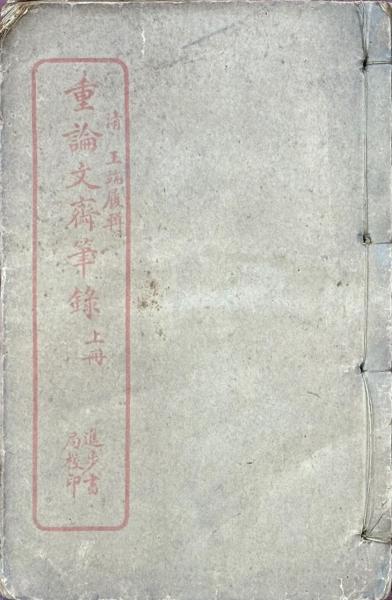 清 王端履輯
重論文齋筆錄 上冊
進步書
局校印